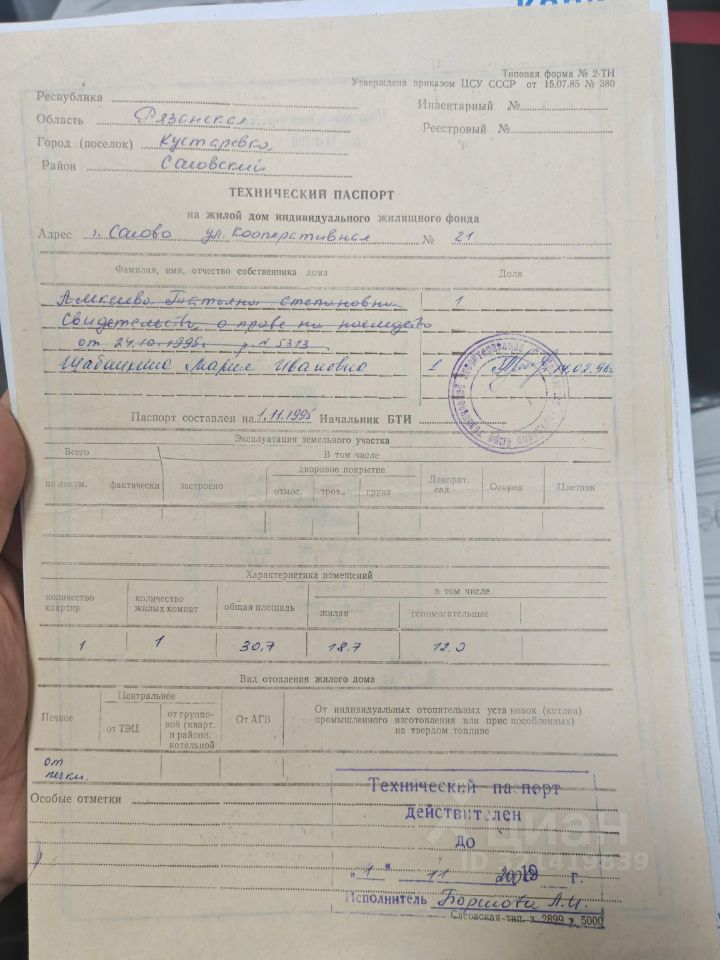 Типовая форма № 2-ТИ
Утверждена приказом ЦСУ СССР от 15.07.85 № 380
Республика
Инвентарный №
Область Рязанская
Реестровый №
Город (поселок) Кустаревка
Район Сасовский
ТЕХНИЧЕСКИЙ ПАСПОРТ
на жилой дом индивидуального жилищного фонда
Адрес г. Сасово ул. Кооперативная № 21
Фамилия, имя, отчество собственника дома Доля
Татьяна Степановна 1
Свидетельство о праве на наследство
от 24.10.1995 р № 5313
Мария Ивановна 1 14.02.96
Паспорт составлен на 1.11.1995 Начальник БТИ
Эксплуатация земельного участка
Всего В том числе
дворовое покрытие
по докум. фактически застроено отмос. трот., грунт Декорат. сад Огород Цветник
Характеристика помещений
количество квартир количество жилых комнат общая площадь в том числе
жилая вспомогательные
1 1 30,7 18.7 12.0
Вид отопления жилого дома
Печное Центральное От АГВ От индивидуальных отопительных установок (котлов) промышленного изготовления или приспособленных на твердом топливе
от ТЭЦ от группо-
вой (кварт.
и районн.
котельной
от
печки.
Особые отметки
Технический паспорт
действителен
до
циан
"1" 11 г.
Исполнитель
Сасовская тип. з. 2899 т. 5000